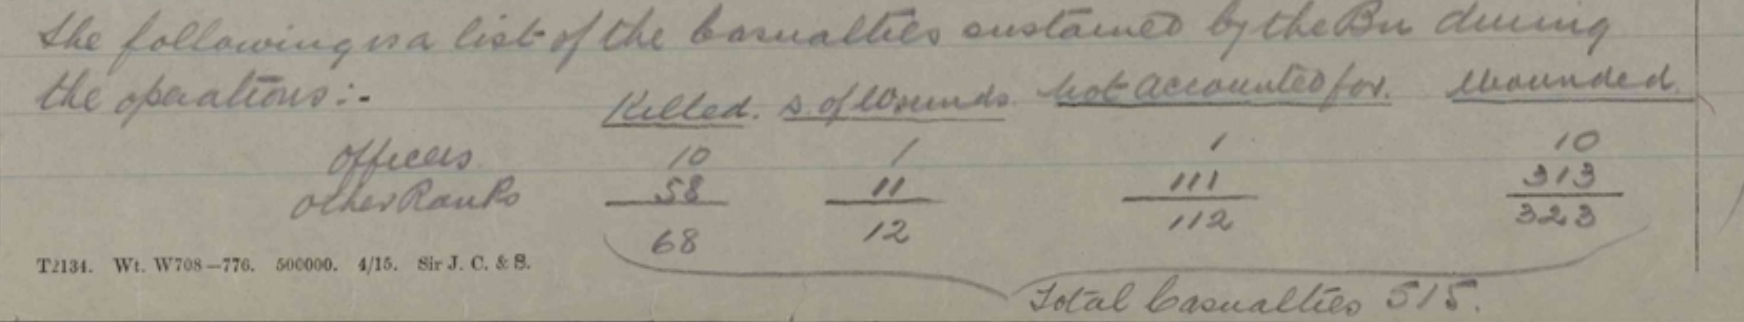 The following is a list of the Casualties sustained by the Bn during
the operations :-
Killed. D. of Wounds. Not accounted for. Wounded.
Officers 10 1 1 10
Other Ranks 58 11 111 313
68 12 112 323
T2134. Wt. W708—776. 500000. 4/15. Sir J. C. & S.
Total Casualties 515.